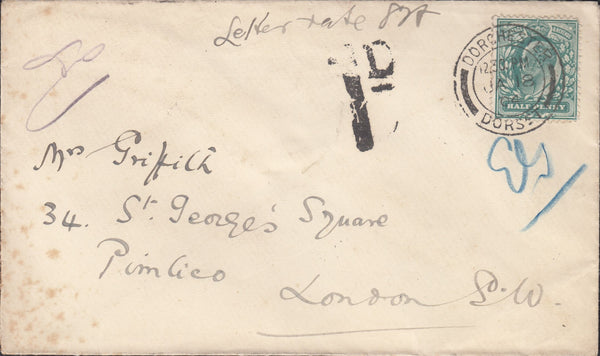 Letter rate
1D
DORCHESTER
DORSET
HALF PENNY
Mrs Griffith
34. St. George's Square
Pimlico
London S.W.